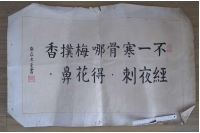 不經
一夜
寒刺
骨·
哪得
梅花
撲鼻
香·